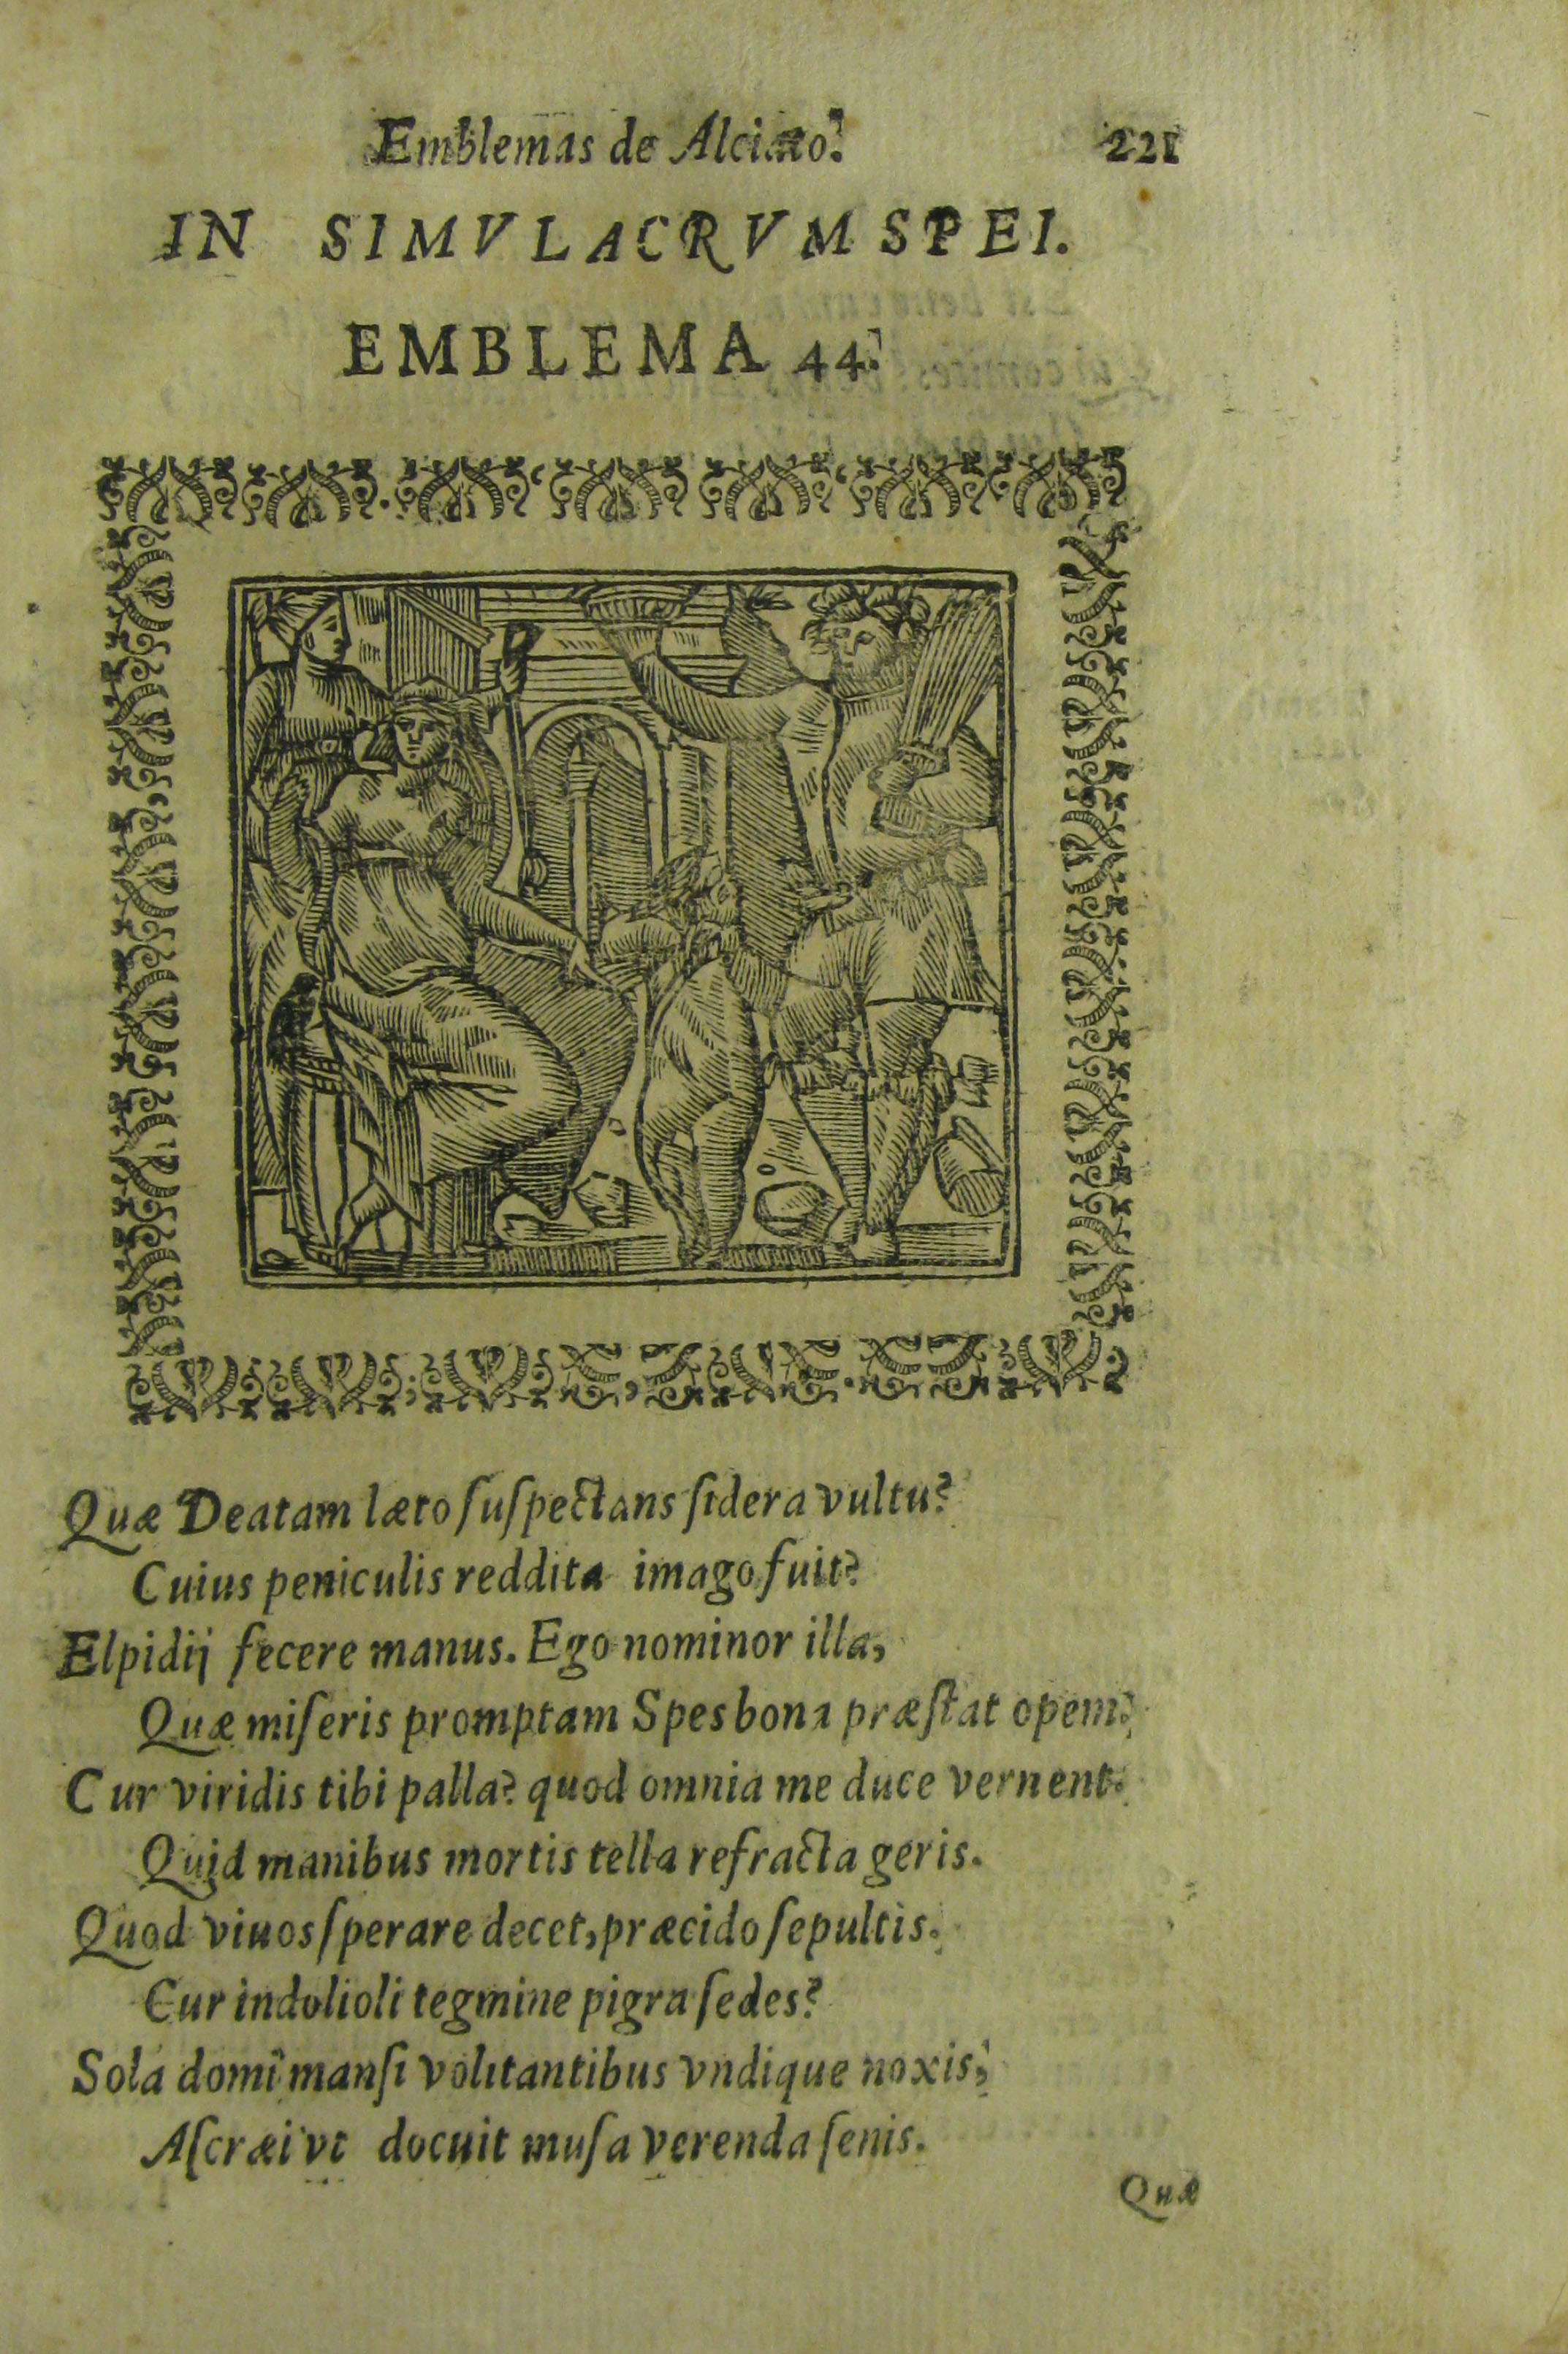 Emblemas de Alciato. 221
IN SIMVLACRVM SPEI.
EMBLEMA 44.
Quæ Deatam læto ſuſpectans ſidera vultu?
Cuius peniculis reddita imago fuit?
Elpidij fecere manus. Ego nominor illa,
Quæ miſeris promptam Spes bona præſtat opem.
Cur viridis tibi palla? quod omnia me duce vernent.
Quid manibus mortis tella refracta geris.
Quod viuos ſperare decet, præcido ſepultis.
Cur indolioli tegmine pigra ſedes?
Sola domi manſi volitantibus vndique noxis,
Aſcræi vt docuit muſa verenda ſenis.
Quæ